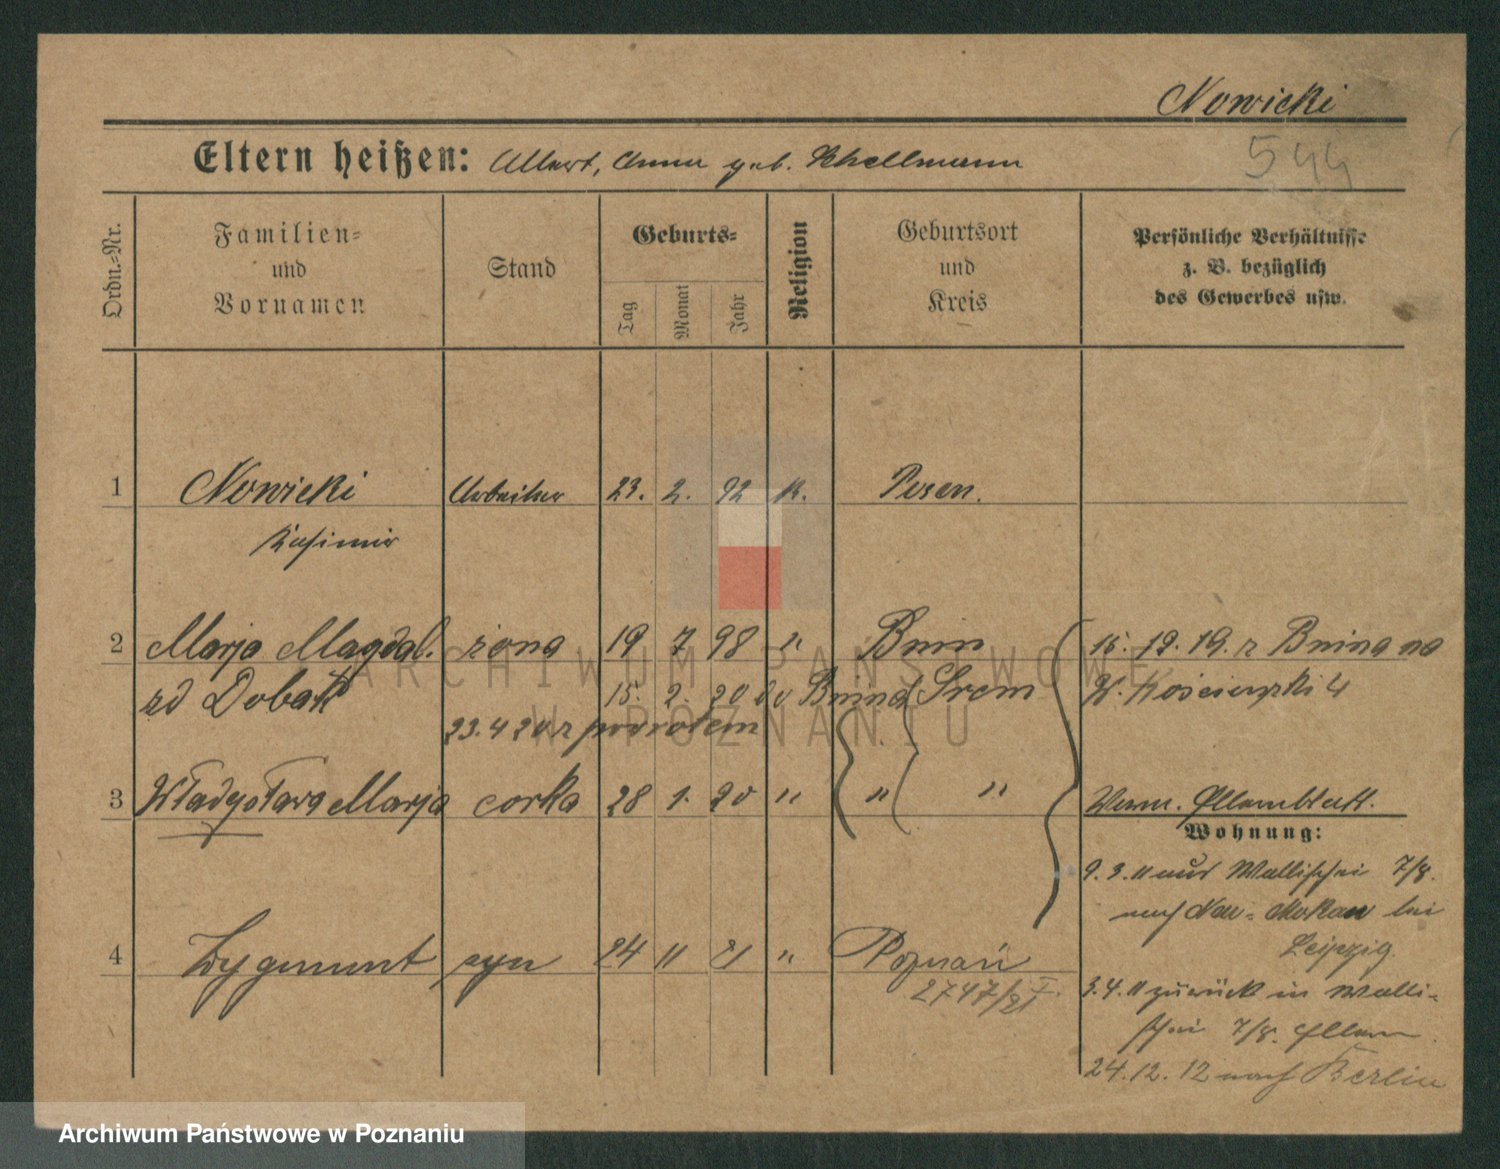 Nowicki
544
Eltern heißen: Albert, Anna geb. Schellmann
Ordn.=Nr.
Familien=
und
Vornamen
Stand
Geburts=
Tag
Monat
Jahr
Religion
Geburtsort
und
Kreis
Persönliche Verhältnisse
z. B. bezüglich
des Gewerbes usw.
1 Nowicki Arbeiter 23. 2. 92 k. Posen.
Kasimir
2 Marja Magdal. żona 19 7 98 " Bnin 15. 12. 19. z Bnina na
zd Dobak 15. 2. 20 do Bnina Śrem W. 4
23. 4 20 z powrotem
3 Władysława Marja corka 28 1. 20 " " " Elternblatt.
Wohnung:
9. 3. 11 aus Wallischei 7/8.
nach Neu=Mokau bei
Leipzig.
4 Zygmunt syn 24 11 21 " Poznań
2747/21 I.
3. 4. 11 zurück in Walli=
schei 7/8. Eltern
24. 12. 12 nach Berlin
ARCHIWUM PAŃSTWOWE
W POZNANIU
Archiwum Państwowe w Poznaniu